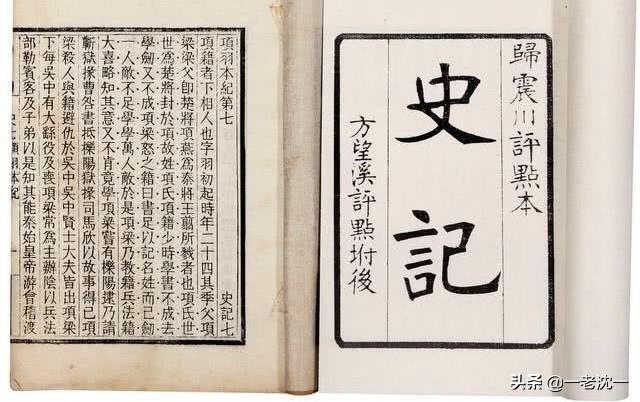 歸震川評點本
史記
方望溪評點坿後
項羽本紀第七 史記七
項籍者下相人也字羽初起時年二十四其季父項
梁梁父卽楚將項燕爲秦將王翦所戮者也項氏世
世爲楚將封於項故姓項氏項籍少時學書不成去
學劔又不成項梁怒之籍曰書足以記名姓而已劔
一人敵不足學學萬人敵於是項梁乃教籍兵法籍
大喜略知其意又不肯竟學項梁嘗有櫟陽逮乃請
蘄獄掾曹咎書抵櫟陽獄掾司馬欣以故事得已項
梁殺人與籍避仇於吳中吳中賢士大夫皆出項梁
下每吳中有大繇役及喪項梁常爲主辦陰以兵法
部勒賓客及子弟以是知其能秦始皇帝游會稽渡
頭条 @一老沈一